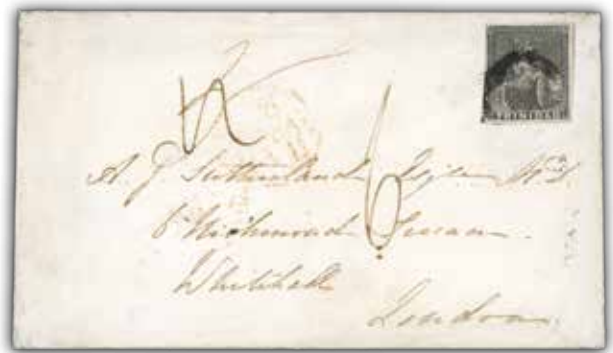 TRINIDAD
A. J. Sutherland Esqre M.D.
6 Richmond Terrace
Whitehall
London
6